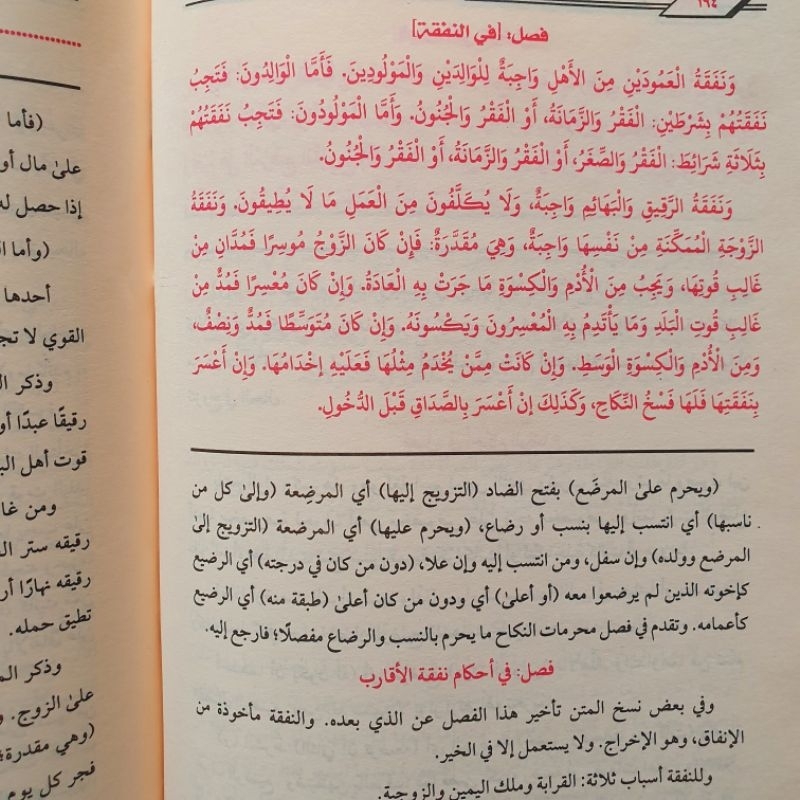 ١٩٤
فصل: [في النفقة]
وَنَفَقَةُ الْعَمُودَيْنِ مِنَ الأَهْلِ وَاجِبَةٌ لِلْوَالِدَيْنِ وَالْمَوْلُودِينَ. فَأَمَّا الْوَالِدُونَ: فَتَجِبُ
نَفَقَتُهُمْ بِشَرْطَيْنِ: الْفَقْرُ وَالزَّمَانَةُ، أَوْ الْفَقْرُ وَالْجُنُونُ. وَأَمَّا الْمَوْلُودُونَ: فَتَجِبُ نَفَقَتُهُمْ
بِثَلَاثَةِ شَرَائِطَ: الْفَقْرُ وَالصِّغَرُ، أَوْ الْفَقْرُ وَالزَّمَانَةُ، أَوْ الْفَقْرُ وَالْجُنُونُ.
وَنَفَقَةُ الرَّقِيقِ وَالْبَهَائِمِ وَاجِبَةٌ، وَلَا يُكَلَّفُونَ مِنَ الْعَمَلِ مَا لَا يُطِيقُونَ. وَنَفَقَةُ
الزَّوْجَةِ الْمُمَكِّنَةِ مِنْ نَفْسِهَا وَاجِبَةٌ، وَهِيَ مُقَدَّرَةٌ: فَإِنْ كَانَ الزَّوْجُ مُوسِرًا فَمُدَّانِ مِنْ
غَالِبِ قُوتِهَا، وَيَجِبُ مِنَ الْأُدْمِ وَالْكِسْوَةِ مَا جَرَتْ بِهِ الْعَادَةُ. وَإِنْ كَانَ مُعْسِرًا فَمُدٌّ مِنْ
غَالِبِ قُوتِ الْبَلَدِ وَمَا يَأْتَدِمُ بِهِ الْمُعْسِرُونَ وَيَكْسُونَهُ. وَإِنْ كَانَ مُتَوَسِّطًا فَمُدٌّ وَنِصْفٌ،
وَمِنَ الْأُدْمِ وَالْكِسْوَةِ الْوَسَطِ. وَإِنْ كَانَتْ مِمَّنْ يُخْدَمُ مِثْلُهَا فَعَلَيْهِ إِخْدَامُهَا. وَإِنْ أَعْسَرَ
بِنَفَقَتِهَا فَلَهَا فَسْخُ النِّكَاحِ، وَكَذَلِكَ إِنْ أَعْسَرَ بِالصَّدَاقِ قَبْلَ الدُّخُولِ.
(ويحرم على المرضَع) بفتح الضاد (التزويج إليها) أي المرضِعة (وإلى كل من
ناسبها) أي انتسب إليها بنسب أو رضاع، (ويحرم عليها) أي المرضعة (التزويج إلى
المرضع وولده) وإن سفل، ومن انتسب إليه وإن علا، (دون من كان في درجته) أي الرضيع
كإخوته الذين لم يرضعوا معه (أو أعلى) أي ودون من كان أعلى (طبقة منه) أي الرضيع
كأعمامه. وتقدم في فصل محرمات النكاح ما يحرم بالنسب والرضاع مفصلًا؛ فارجع إليه.
فصل: في أحكام نفقة الأقارب
وفي بعض نسخ المتن تأخير هذا الفصل عن الذي بعده. والنفقة مأخوذة من
الإنفاق، وهو الإخراج. ولا يستعمل إلا في الخير.
وللنفقة أسباب ثلاثة: القرابة وملك اليمين والزوجية.
(فأما
على مال أو
إذا حصل له
(وأما
أحدها
القوي لا
وذكر
رقيقًا عبدًا أو
قوت أهل
ومن
رقيقه ستر
رقيقه نهارًا
تطيق حمله.
وذكر
على الزوج.
(وهي مقدرة؛
فجر كل يوم